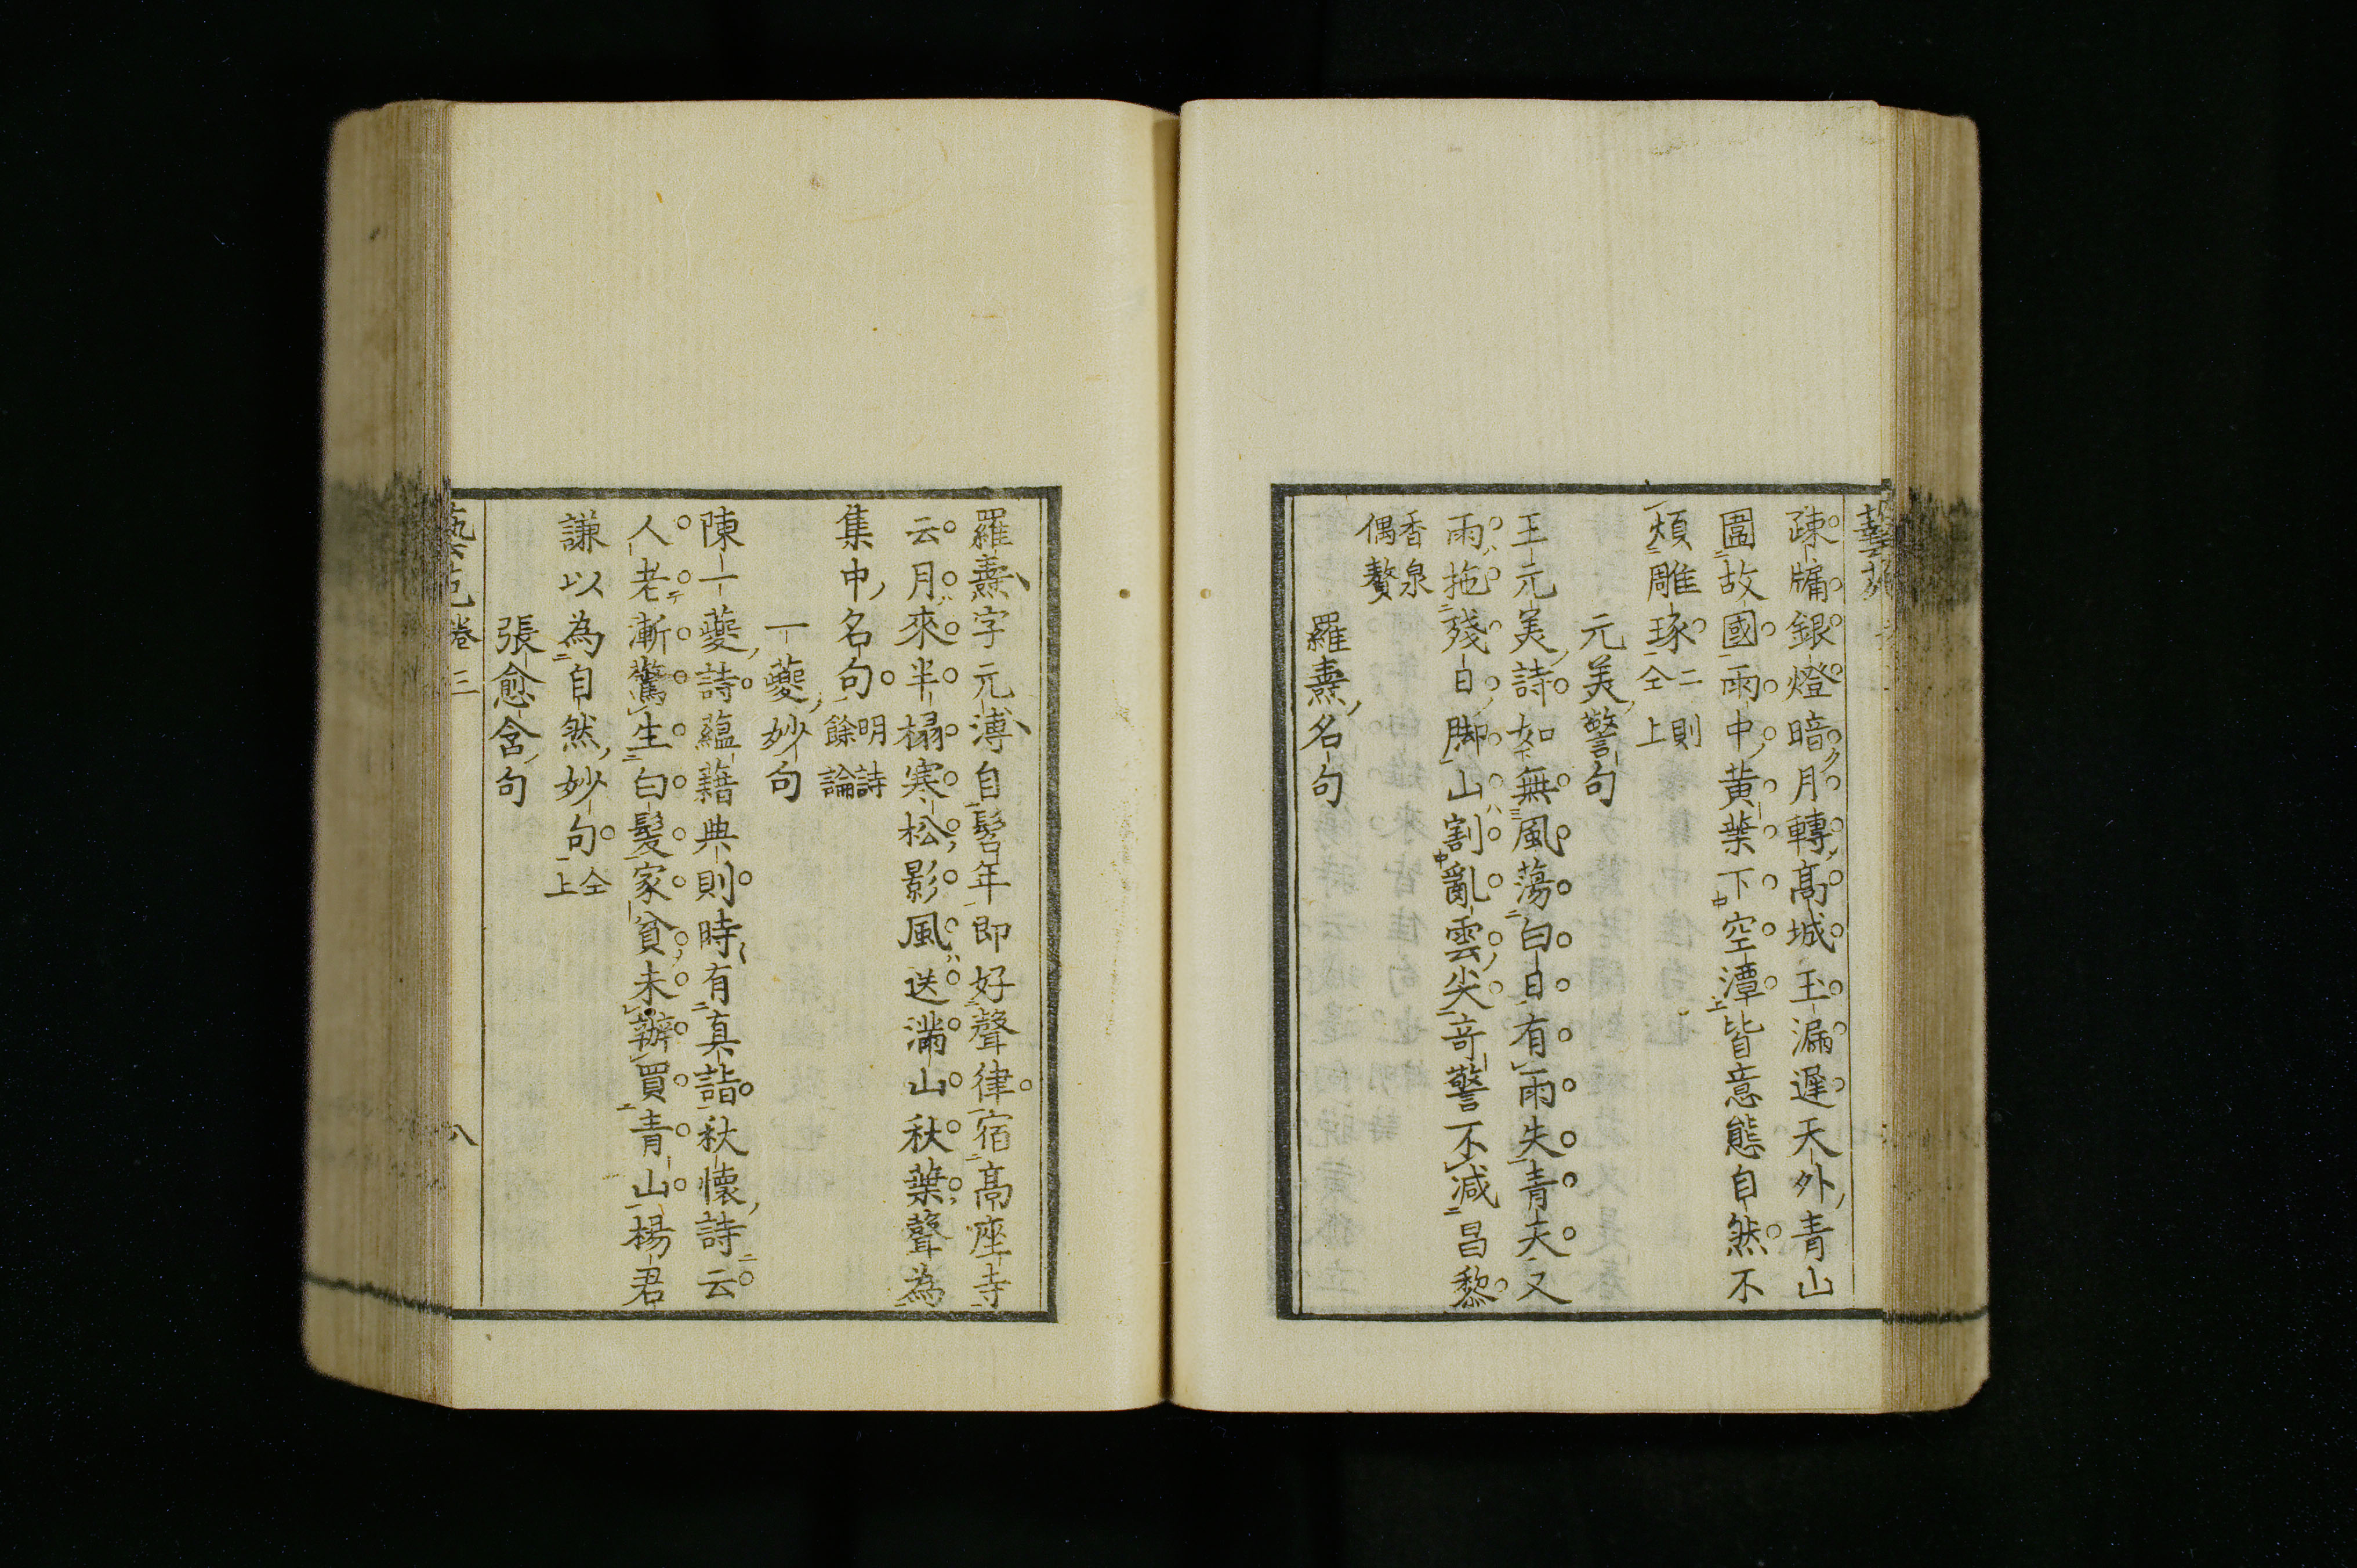 藝苑
疎牖銀燈暗月轉高城玉漏遲天外青山
圍故國雨中黄葉下空潭皆意態自然不
煩雕琢二則仝上
元美警句
王元美詩如無風蕩白日有雨失青天又
雨拖殘日脚山割亂雲尖竒警不减昌黎
香泉偶贅
羅燾名句
羅燾字元溥自髫年即好聲律宿高座寺
云月來半榻寒松影風送滿山秋葉聲為
集中名句明詩餘論
一夔妙句
陳一夔詩蘊藉典則時有真詣秋懷詩云
人老漸驚生白髮家貧未辦買青山楊君
謙以為自然妙句仝上
張愈含句
藝苑卷三
八